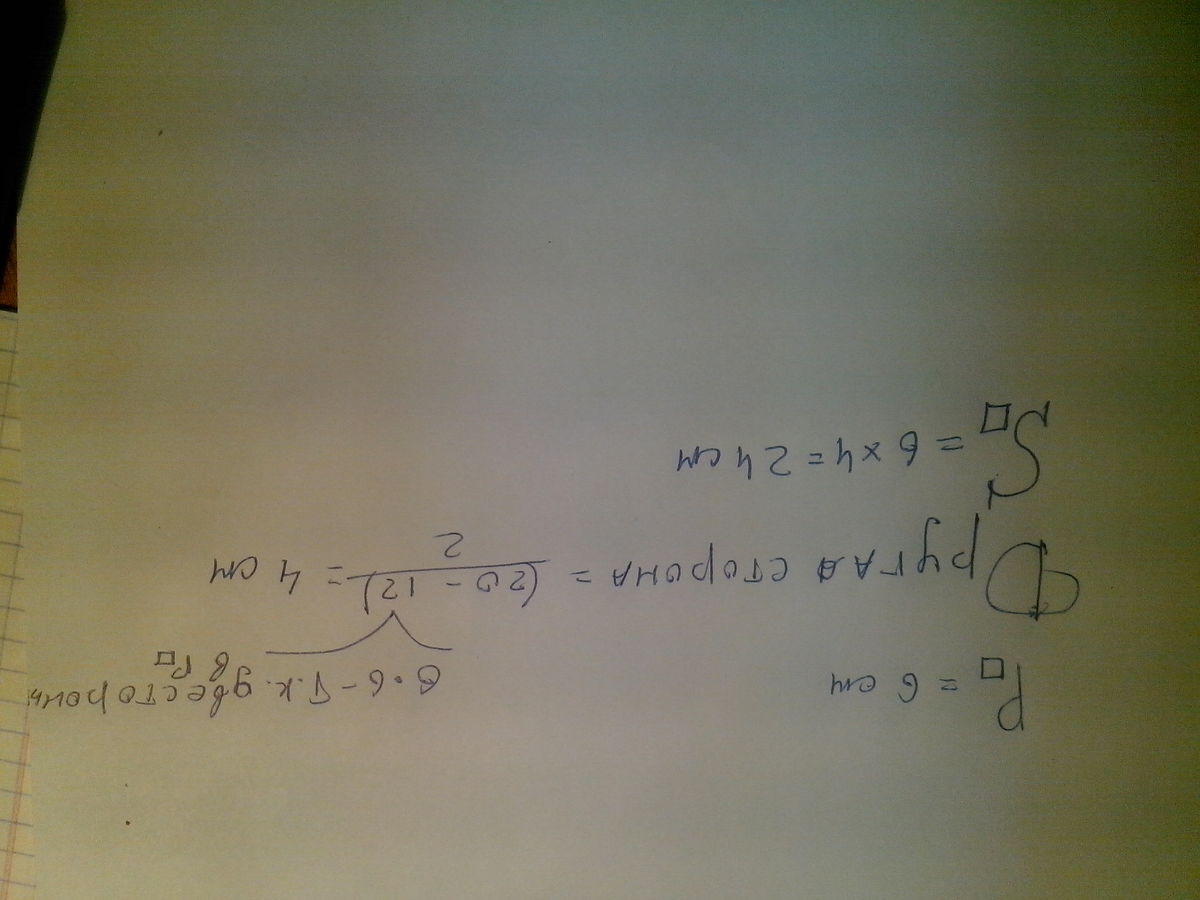 P□ = 6 см
6·6 - т.к. две стороны
в P□
Другая сторона = (20 - 12) / 2 = 4 см
S□ = 6 × 4 = 24 см